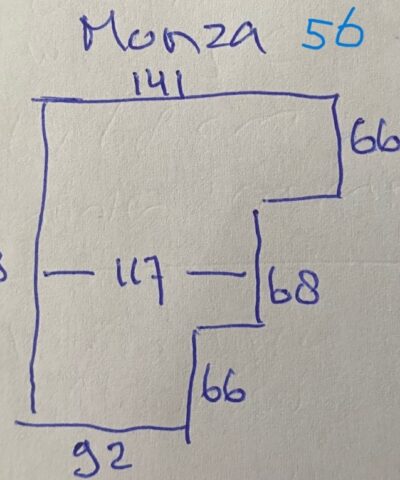 Monza 56
141
66
117
68
66
92